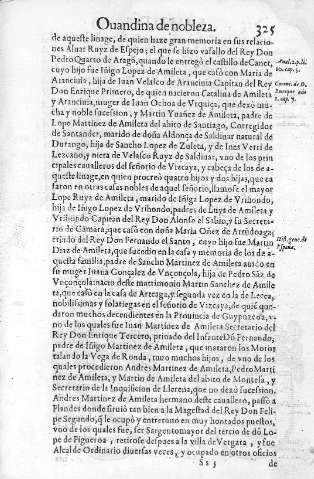 Ouandina de nobleza. 325
de aqueste linage, de quien haze gran memoria en sus relacio
nes Aluar Ruyz de Espejo; el que se hizo vasallo del Rey Don
Pedro Quarto de Aragõ, quando le entregò el castillo de Canet,
cuyo hijo fue Iñigo Lopez de Amileta, que casò con Maria de
Aranciuia, hija de Iuan Velasco de Aranciuia Capitan del Rey
Don Enrique Primero, de quien nacieron Catalina de Amileta
y Aranciuia, muger de Iuan Ochoa de Vrquiça, que dexò mu-
cha y noble sucession, y Martin Yuañez de Amileta, padre de
Lope Martinez de Amileta del abito de Santiago, Corregidor
de Santander, marido de doña Aldonça de Saldinar natural de
Durango, hija de Sancho Lopez de Zuleta, y de Ines Verri de
Lezcano, y nieta de Velasco Ruyz de Saldinar, vno de los prin
cipales caualleros del señorio de Vizcaya, y cabeça de los de a-
queste linage, en quien procreò quatro hijos y dos hijas, que ca
saron en otras casas nobles de aquel señorio, llamose el mayor
Lope Ruyz de Amileta, marido de Iñiga Lopez de Vrihondo,
hija de Iñigo Lopez de Vrihondo, padres de Luys de Amileta y
Vrihondo Capitan del Rey Don Alonso el Sabio, y su Secreta-
rio de Camara, que casò con doña Maria Oñez de Artudoaga;
criado del Rey Don Fernando el Santo, cuyo hijo fue Martin
Diaz de Amileta, que sucedio en la casa y memoria de los de a-
quella familia, padre de Sancho Martinez de Amileta auido en
su muger Iuana Gonçalez de Vnçonçola, hija de Pedro Saz de
Vnçonçola: nacio deste matrimonio Martin Sanchez de Amile
ta, que casò en la casa de Arteaga, y segunda vez en la de Lecea,
nobilissimas y solariegas en el señorio de Vizcaya, de quiẽ que-
daron muchos decendientes en la Prouincia de Guypuzcoa, v-
no de los quales fue Iuan Martinez de Amileta Secretario del
Rey Don Enrique Tercero, priuado del Infante Dõ Fernando,
padre de Iñigo Martinez de Amileta, que mataron los Moros
talando la Vega de Ronda, tuuo muchos hijos, de vno de los
quales procedieron Andres Martinez de Amileta, Pedro Marti
nez de Amileta, y Martin de Amileta del abito de Montesa, y
Secretario de la Inquisicion de Llerena, que no dexò sucession.
Andres Martinez de Amileta hermano deste cauallero, passò a
Flandes donde siruiò tan bien a la Magestad del Rey Don Feli-
pe Segundo, q̃ le ocupò y entretuuo en muy hontados puestos,
vno de los quales fue, ser Sargento mayor del tercio de dõ Lo-
pe de Figueroa, retirose despues a la villa de Vergara, y fue
Alcalde Ordinario diuersas vezes, y ocupado en otros oficios
Ss 5 de